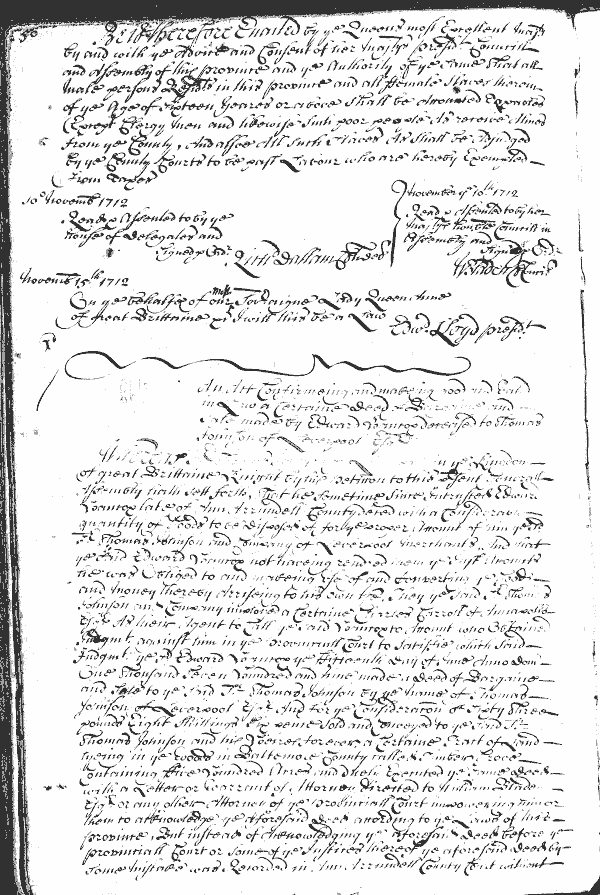 56
Be it therefore Enacted by ye Queens most Excellent Majty
by and with ye Advice and Consent of her Majtys presidt Councill
and Assembly of this province and ye Authority of ye same that all
Male persons in this province and all female Slaves therein
of ye Age of sixteen Yeares or above shall be Accounted
Except Clergy men and likewise Such poor people As receive Almes
from ye County, And alsoe All such Slaves As shall be Adjudged
by ye County Courts to be past Labour who are hereby Exempted
from Taxes
10o Novembr 1712
Read & Assented to by ye
House of Delegates and
Signed Ordr
Richd Dallam
November ye 10th 1712
Read & Assented to by her
Majtys honoble Councill in
Assembly and Signed
W Bladen
Novembr 15th 1712
On ye behalfe of our Soveraigne Lady Queen Anne
of Great Brittaine &c I will this be a Law
Edwd Lloyd presidt
An Act Confirmeing and makeing good and valid
in Law a Certaine deed of Bargaine and
Sale made by Edward deceased to Thomas
Johnson of Leverpool Esqr
Whereas London
of great Brittaine Knight by his petition to this Generall
Assembly hath sett forth, that he sometime Since Intrusted Edward
late of Ann Arrundell County with a Considerable
quantity of Goods to be disposed of for ye proper Account of him ye sd
Sr Thomas Johnson and Company of Leverpool Merchants, And that
ye said Edward not haveing
he was Obliged to and makeing use of and Converting ye Goods
and money thereby Ariseing to his own use, They ye said Sr Thomas
Johnson and Company Charles Carroll of Annapolis
Esqr As their Agent to Call ye said to Account who Obtained
Judgmt against him in ye provinciall Court to Satisfie which said
Judgmt ye sd Edward ye fifteenth day of June Anno Dom
One Thousand Seven hundred and nine made a deed of Bargaine
and Sale to ye said Sr Thomas Johnson by ye name of Thomas
Johnson of Leverpool Esqr And for ye Consideration of Sixty three
pounds Eight Shillings pence Sold and Conveyed to ye said Sr
Thomas Johnson and his heires forever a Certaine Tract of Land
lyeing in ye woods in Baltemore County called
Containing five hundred Acres and Executed ye same deed
with a Letter or warrant of Attorney directed to William Bladen
Esqr or any other Attorney of ye provinciall Court impowering him or
them to acknowledge ye aforesaid deed according to ye Laws of this
province But instead of Acknowledging ye aforesaid deed before ye
provinciall Court or some of ye Justices thereof ye aforesaid deed by
some mistake was Recorded in Ann Arrundell County Court without